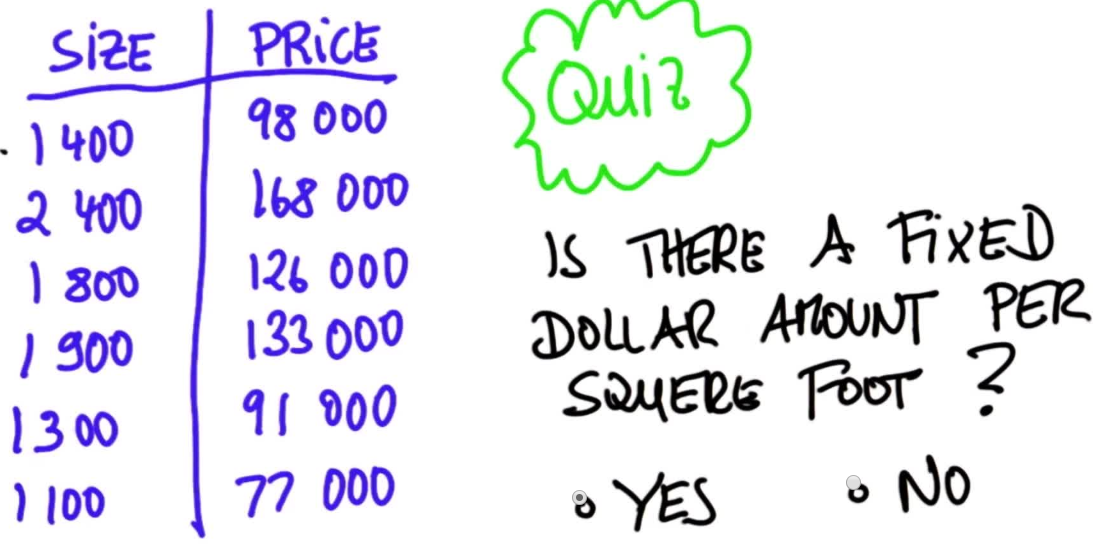 SIZE PRICE
1 400 98 000
2 400 168 000
1 800 126 000
1 900 133 000
1300 91 000
1 100 77 000
Quiz
IS THERE A FIXED
DOLLAR AMOUNT PER
SQUERE FOOT ?
YES NO